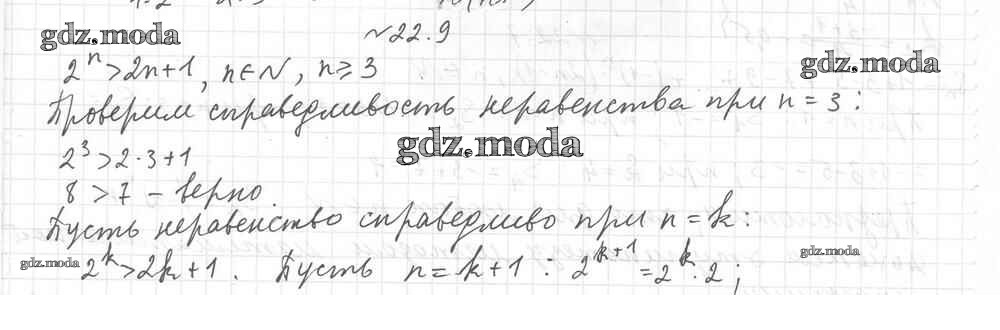 gdz.moda
№22.9
2^n > 2n+1, n∈N, n⩾3
gdz.moda
Проверим справедливость неравенства при n = 3:
gdz.moda
2^3 > 2·3+1
8 > 7 – верно.
Пусть неравенство справедливо при n = k:
gdz.moda
2^k > 2k+1. Пусть n = k+1: 2^{k+1} = 2^k·2;
gdz.moda